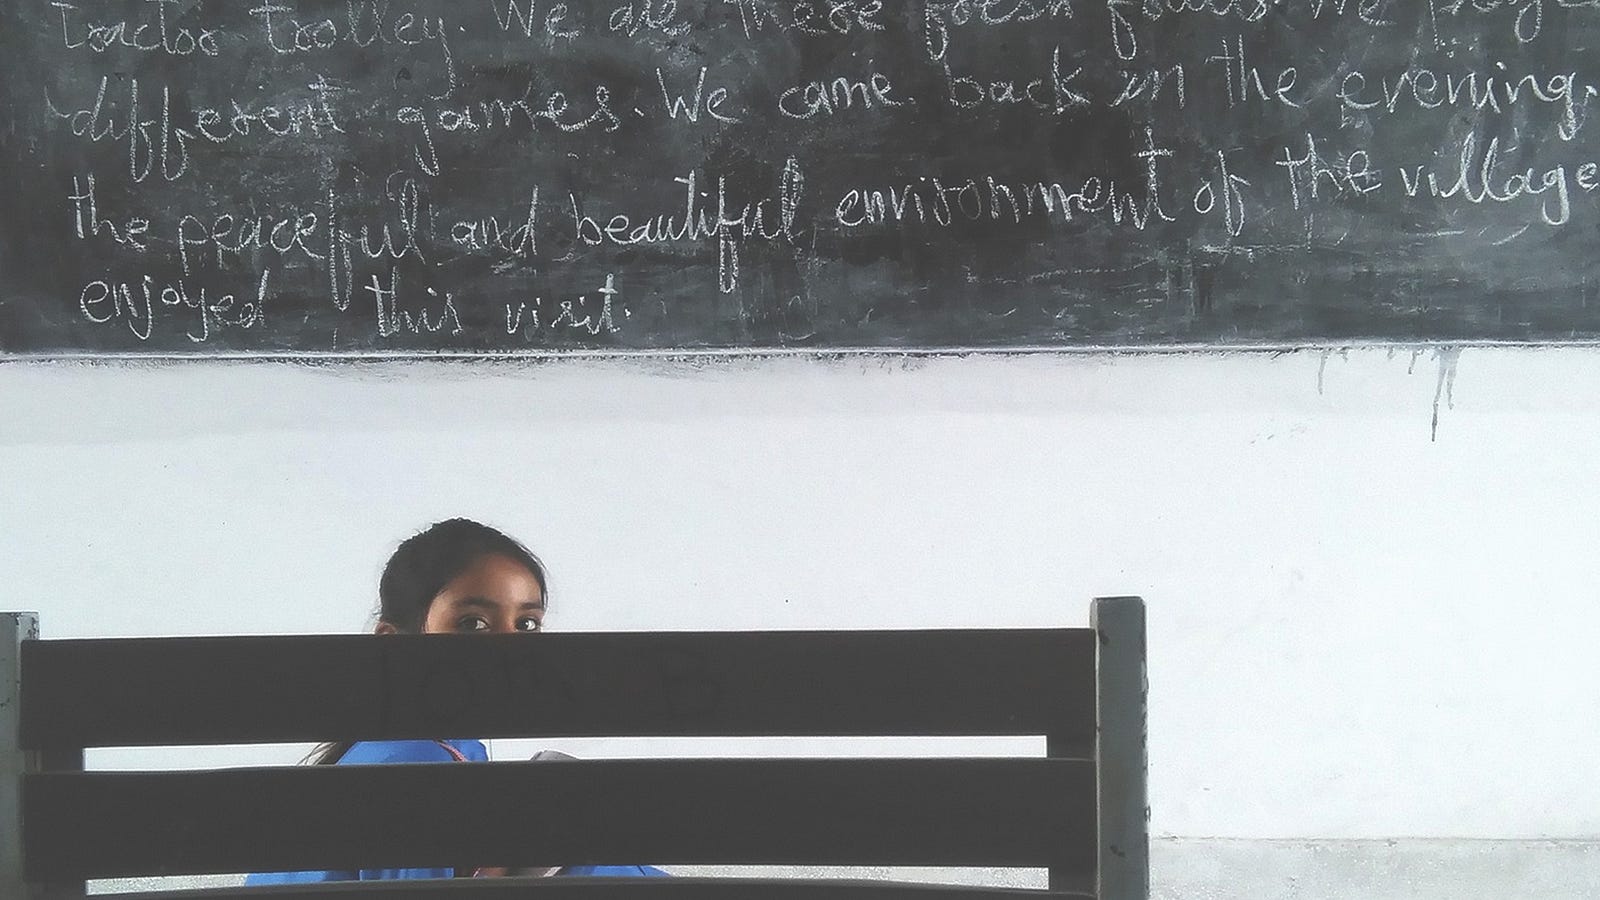 Tractor trolley. We are these fresh fruits. We played
different games. We came back in the evening.
the peaceful and beautiful environment of the village
enjoyed this visit.